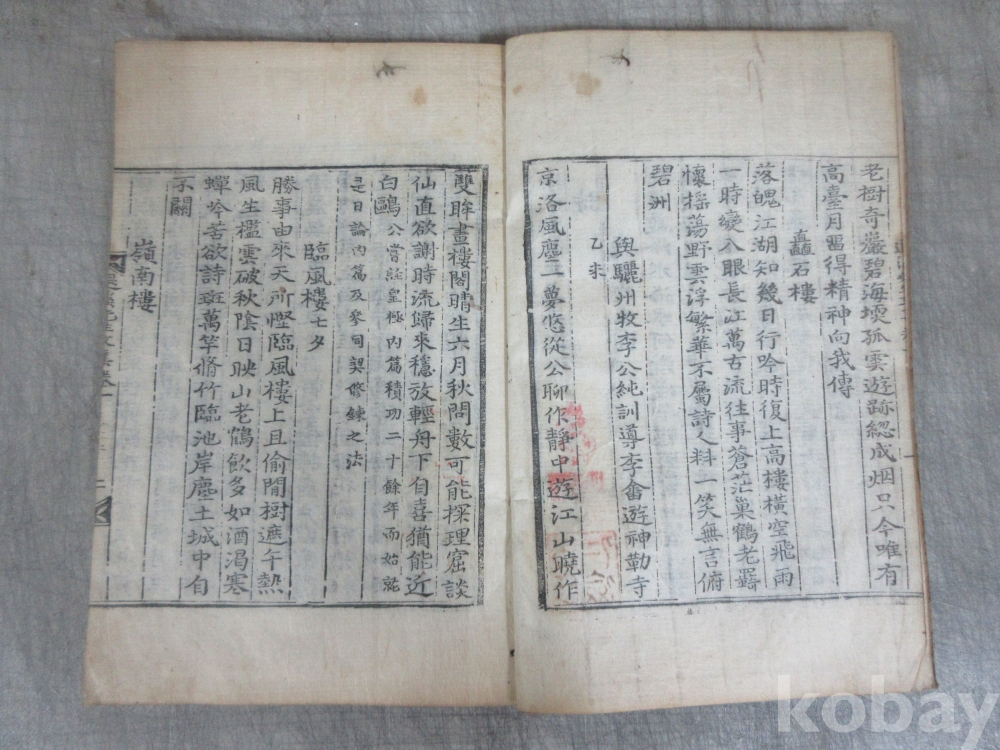 老樹奇巖碧海堧孤雲遊跡緫成烟只今唯有
高臺月畱得精神向我傳
矗石樓
落魄江湖知幾日行吟時復上高樓橫空飛雨
一時變入眼長江萬古流往事蒼茫巢鶴老羇
懷搖蕩野雲浮繁華不屬詩人料一笑無言俯
碧洲
與驪州牧李公純訓導李畬遊神勒寺
乙未
京洛風塵一夢悠從公聊作靜中遊江山曉作
雙眸畫樓閣晴生六月秋問數可能探理窟談
仙直欲謝時流歸來穩放輕舟下自喜猶能近
白鷗公嘗註皇極內篇積功二十餘年而始就
是日論內篇及參同契修鍊之法
臨風樓七夕
勝事由來天所慳臨風樓上且偷閒樹遮午熱
風生檻雲破秋陰日映山老鶴飲多如酒渴寒
蟬吟苦欲詩斑萬竿脩竹臨池岸塵土城中自
不關
嶺南樓
kobay